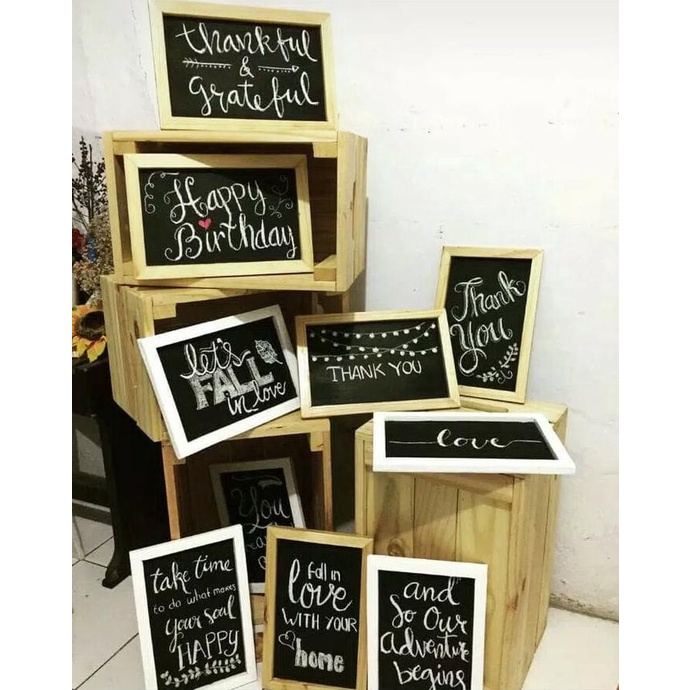 thankful
&
grateful
Happy
Birthday
Thank
You
let's
FALL
in love
THANK YOU
love
You
take time
to do what makes
your soul
HAPPY
fall in
love
WITH YOUR
home
and
So Our
adventure
begins